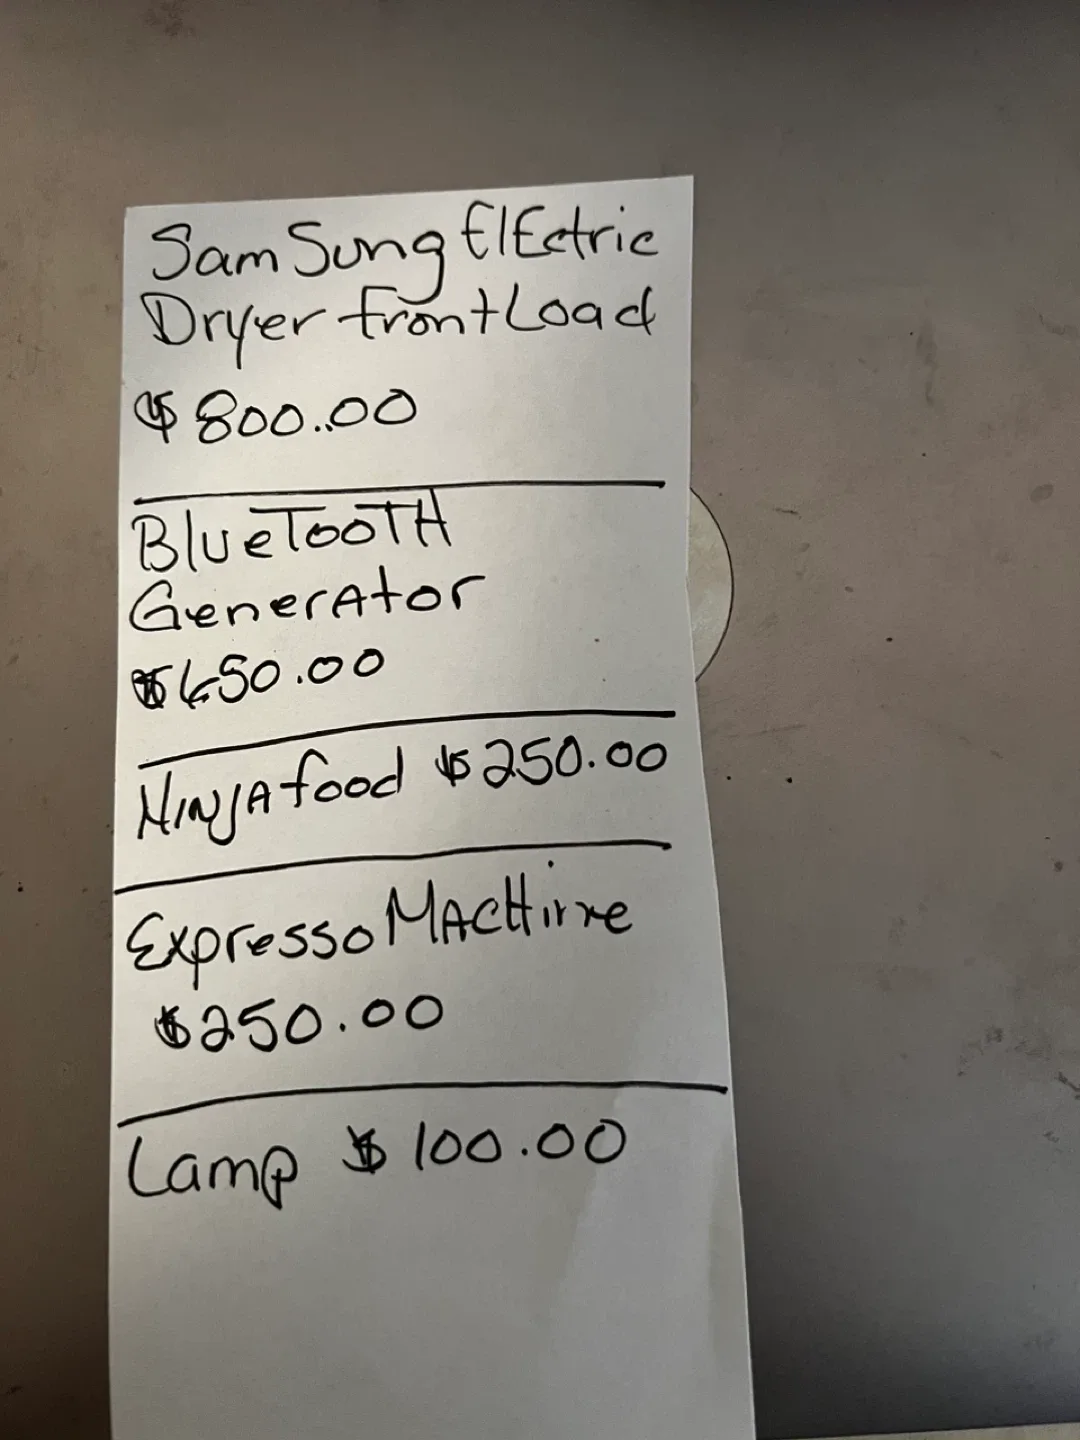 SamSung ElEctric
Dryer frontLoad
$800.00
BlueTooTH
GenerAtor
$650.00
NINJA food $250.00
Expresso MACHine
$250.00
Lamp $100.00